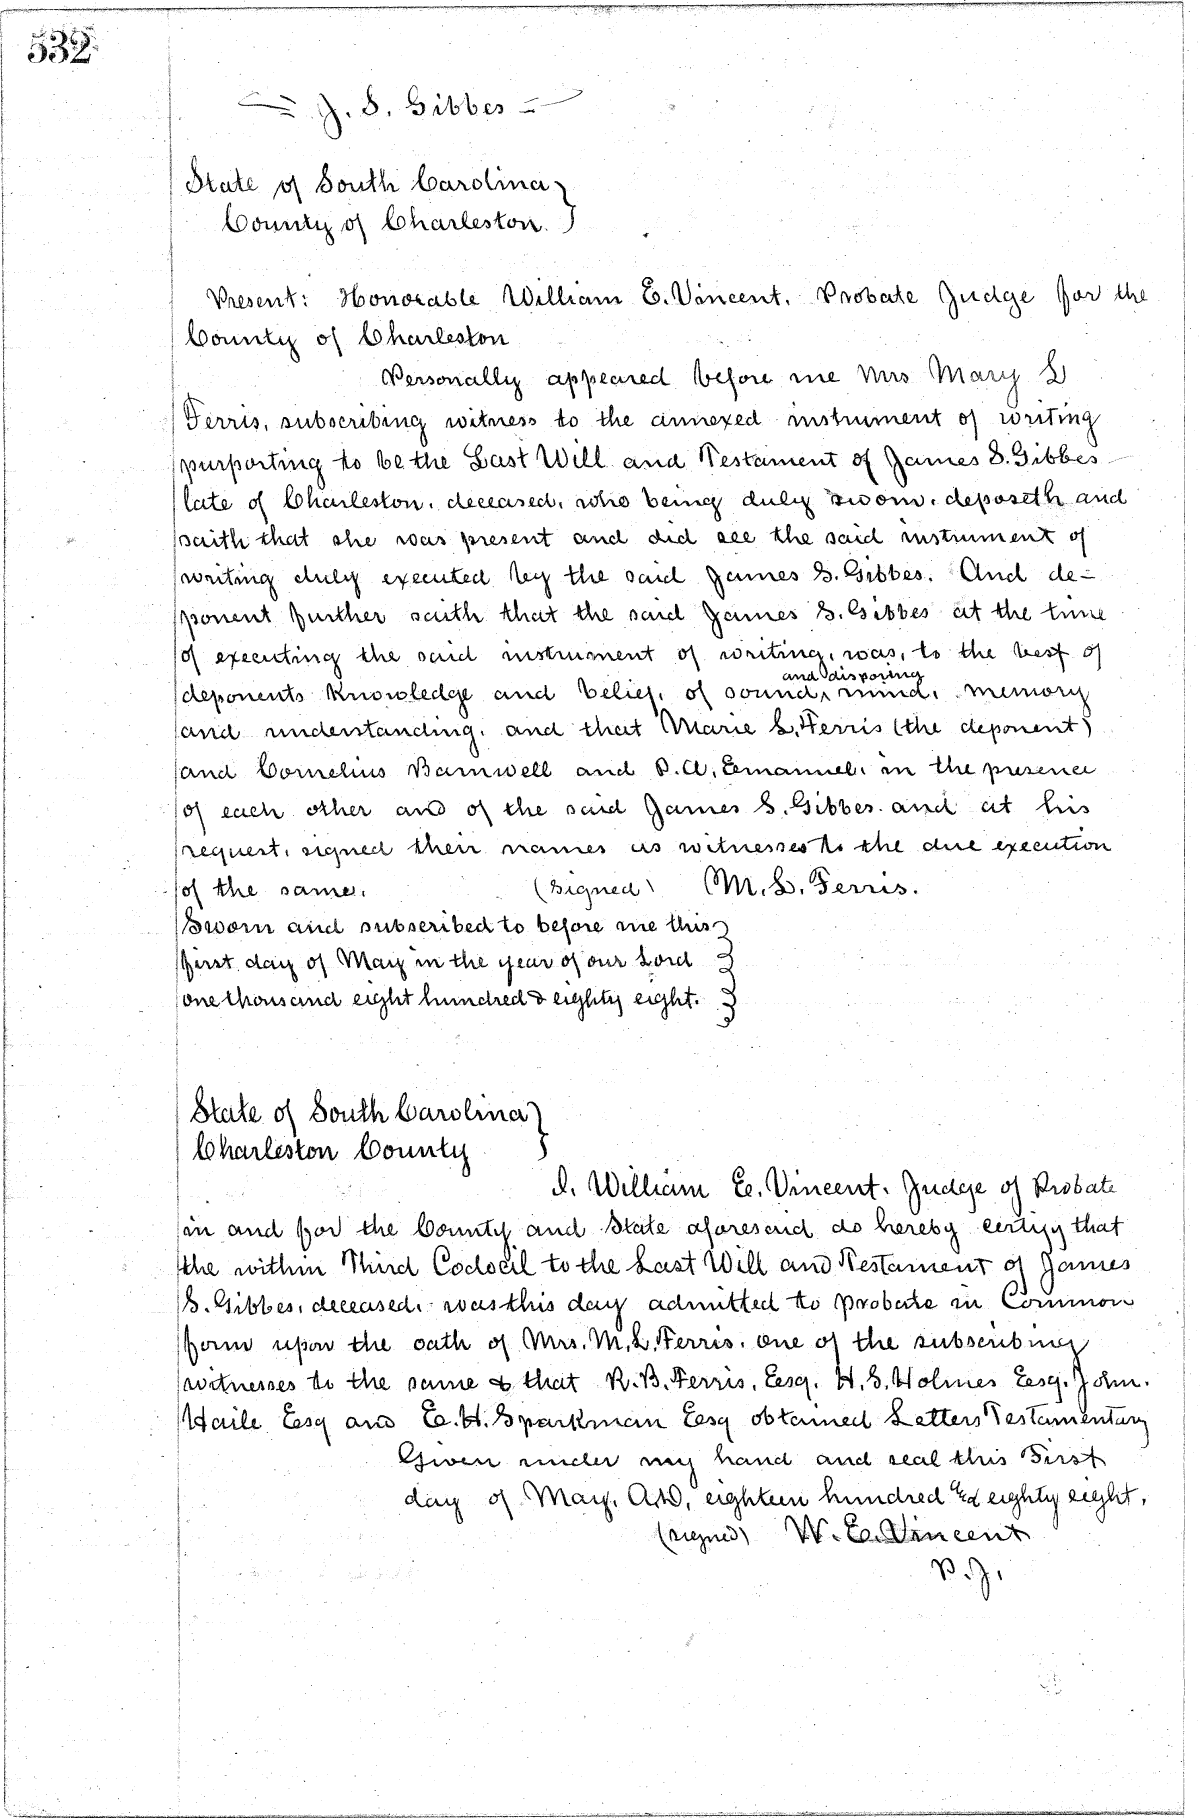 532
J. S. Gibbes
State of South Carolina
County of Charleston.
Present: Honorable William E. Vincent, Probate Judge for the
County of Charleston
Personally appeared before me Mrs Mary L
Ferris, subscribing witness to the annexed instrument of writing
purporting to be the Last Will and Testament of James S. Gibbes
late of Charleston, deceased, who being duly sworn, deposeth and
saith that she was present and did see the said instrument of
writing duly executed by the said James S. Gibbes. And de=
ponent further saith that the said James S. Gibbes at the time
of executing the said instrument of writing, was, to the best of
and disposing
deponents knowledge and belief, of sound, mind, memory
and understanding, and that Marie L. Ferris (the deponent)
and Cornelius Barnwell and P. A. Emanuel, in the presence
of each other and of the said James S. Gibbes and at his
request, signed their names as witnesses to the due execution
of the same. (signed) M. L. Ferris.
Sworn and subscribed to before me this
first day of May in the year of our Lord
one thousand eight hundred & eighty eight.
State of South Carolina
Charleston County
I, William E. Vincent, Judge of Probate
in and for the County and State aforesaid do hereby certify that
the within Third Codocil to the Last Will and Testament of James
S. Gibbes, deceased, was this day admitted to probate in Common
form upon the oath of Mrs. M. L. Ferris, one of the subscribing
witnesses to the same & that R. B. Ferris, Esq. H. S. Holmes Esq. John.
Haile Esq and E. H. Sparkman Esq obtained Letters Testamentary
Given under my hand and seal this First
day of May, A.D. eighteen hundred and eighty eight.
(signed) W. E. Vincent
P. J.